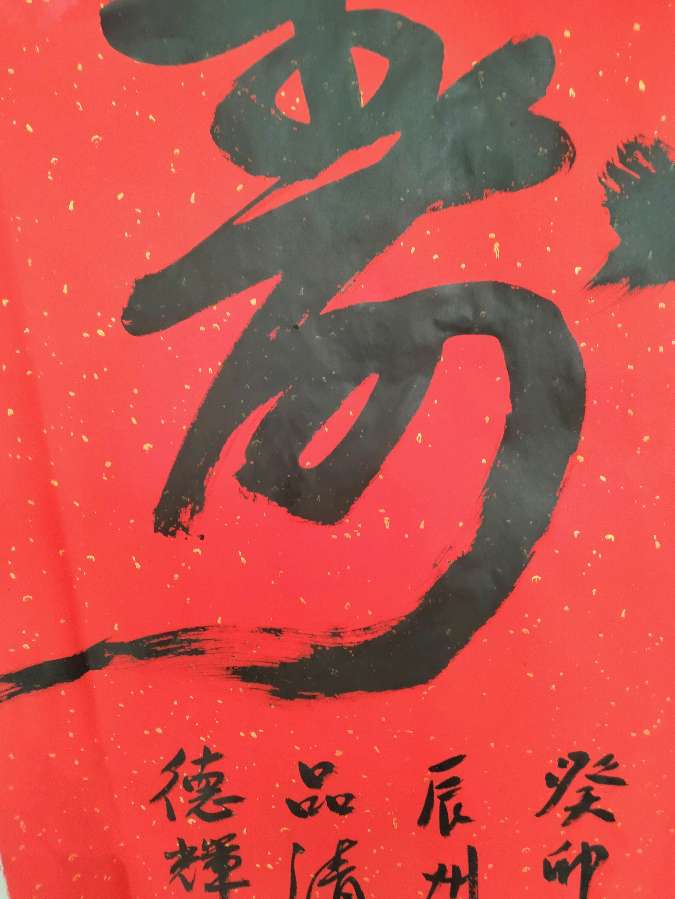 癸卯
辰州
品清
德輝